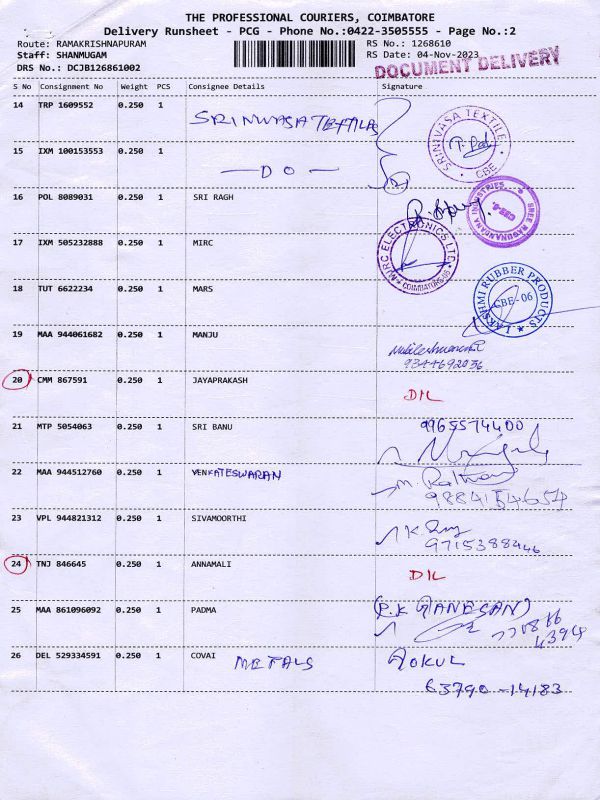 THE PROFESSIONAL COURIERS, COIMBATORE
Delivery Runsheet - PCG - Phone No.:0422-3505555 - Page No.:2
Route: RAMAKRISHNAPURAM RS No.: 1268610
Staff: SHANMUGAM RS Date: 04-Nov-2023
DRS No.: DCJB126861002 DOCUMENT DELIVERY
S No Consignment No Weight PCS Consignee Details Signature
14 TRP 1609552 0.250 1 SRINIVASA TEXTILES SRINIVASA TEXTILE CBE
15 IXM 100153553 0.250 1 - DO -
16 POL 8089031 0.250 1 SRI RAGH SREE RAGUNANTANA INDUSTRIES CBE-6.
17 IXM 505232888 0.250 1 MIRC MIRC ELECTRONICS LTD. COIMBATORE-06
18 TUT 6622234 0.250 1 MARS LAKSHMI RUBBER PRODUCTS CBE-06
19 MAA 944061682 0.250 1 MANJU
9344692036
20 CMM 867591 0.250 1 JAYAPRAKASH DIL
21 MTP 5054063 0.250 1 SRI BANU 9965574400
22 MAA 944512760 0.250 1 VENKATESWARAN
23 VPL 944821312 0.250 1 SIVAMOORTHI
9715388446
24 TNJ 846645 0.250 1 ANNAMALI DIL
25 MAA 861096092 0.250 1 PADMA (P.K GANESAN)
26 DEL 529334591 0.250 1 COVAI METALS GOKUL
63790-14183